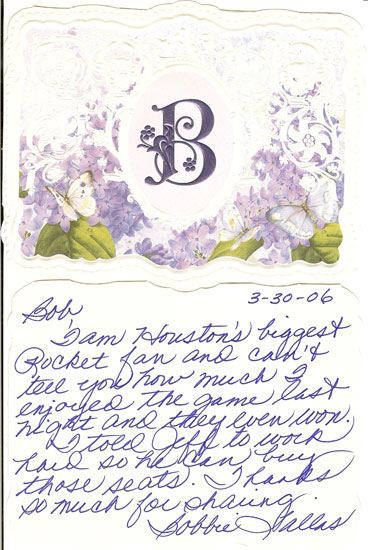 B
3-30-06
Bob
I am Houston's biggest
Rocket fan and can't
tell you how much I
enjoyed the game last
night and they even won.
I told Jeff to work
hard so he can buy
those seats. Thanks
so much for sharing.
Bobbie Dallas